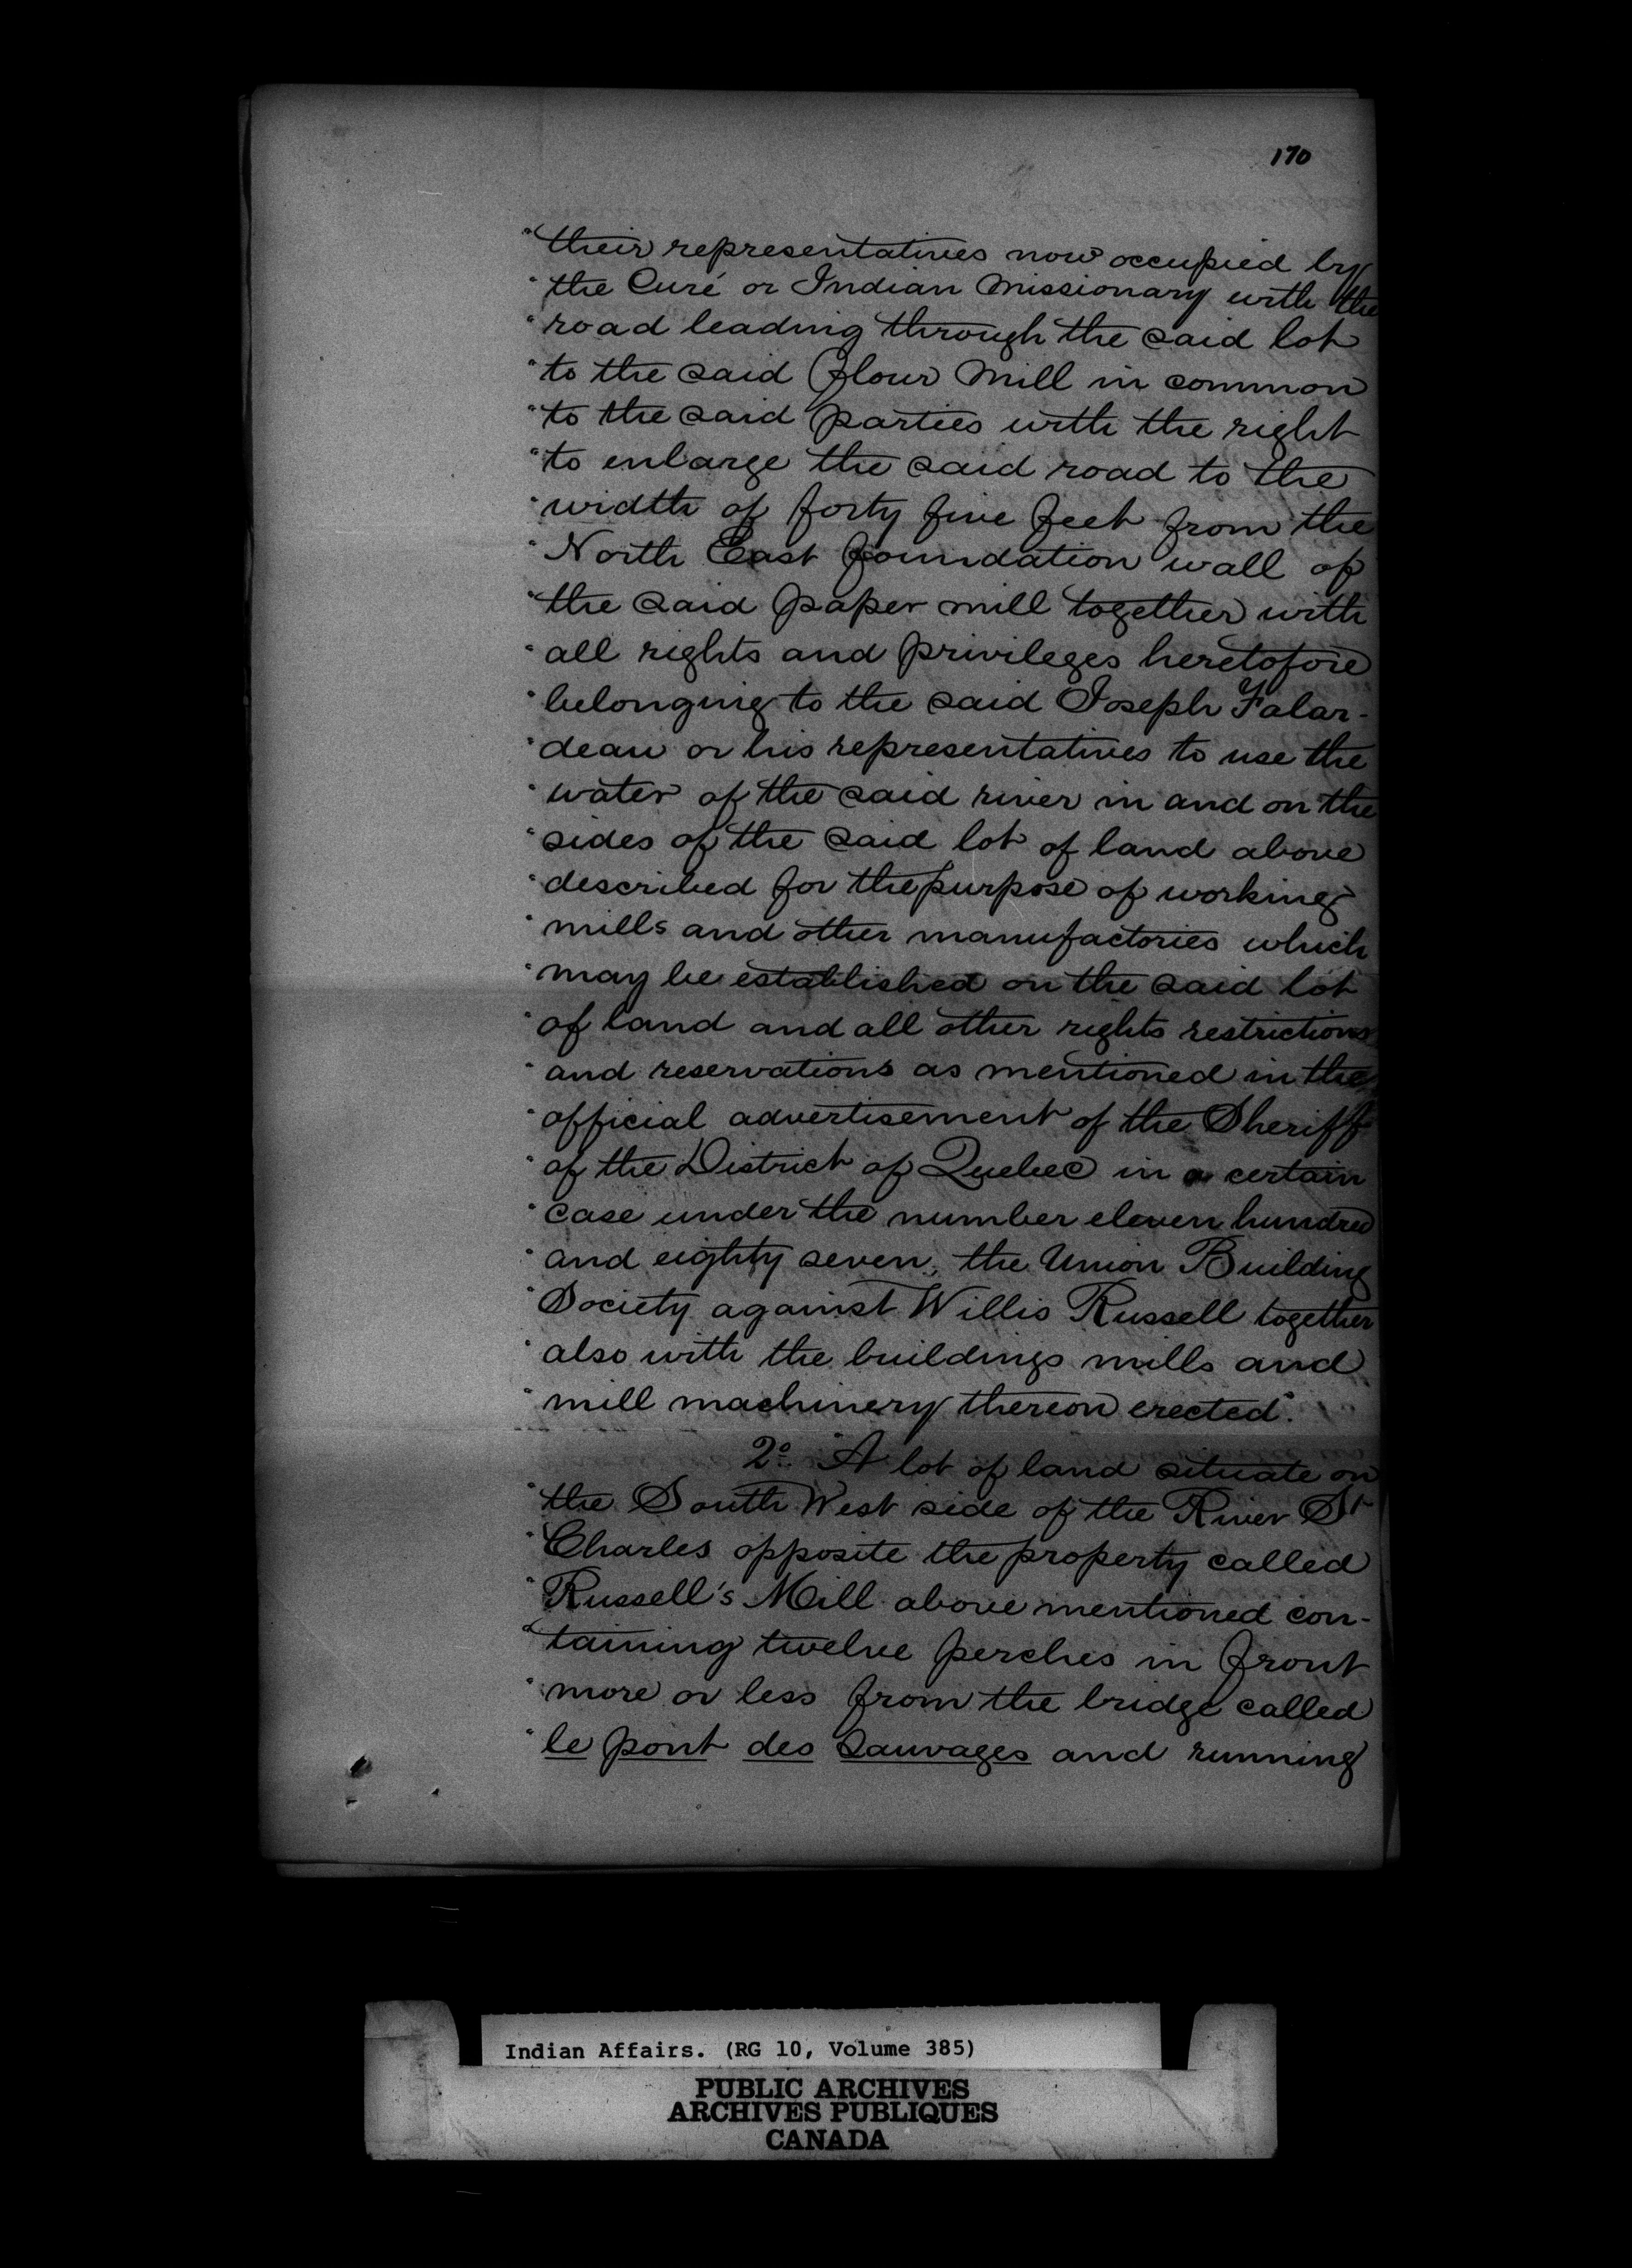 170
"their representatives now occupied by
"the Curé or Indian Missionary with the
"road leading through the said lot
"to the said flour Mill in common
"to the said parties with the right
"to enlarge the said road to the
"width of forty five feet from the
"North East foundation wall of
"the said paper mill together with
"all rights and privileges heretofore
"belonging to the said Joseph Falar-
"deau or his representatives to use the
"water of the said river in and on the
"sides of the said lot of land above
"described for the purpose of working
"mills and other manufactories which
"may be established on the said lot
"of land and all other rights restrictions
"and reservations as mentioned in the
"official advertisement of the Sheriff
"of the District of Quebec in a certain
"case under the number eleven hundred
"and eighty seven, the Union Building
"Society against Willis Russell together
"also with the buildings mills and
"mill machinery thereon erected".
2º "A lot of land situate on
"the South West side of the River St
"Charles opposite the property called
"Russell's Mill above mentioned con-
"taining twelve perches in front
"more or less from the bridge called
"le pont des Sauvages and running
Indian Affairs. (RG 10, Volume 385)
PUBLIC ARCHIVES
ARCHIVES PUBLIQUES
CANADA